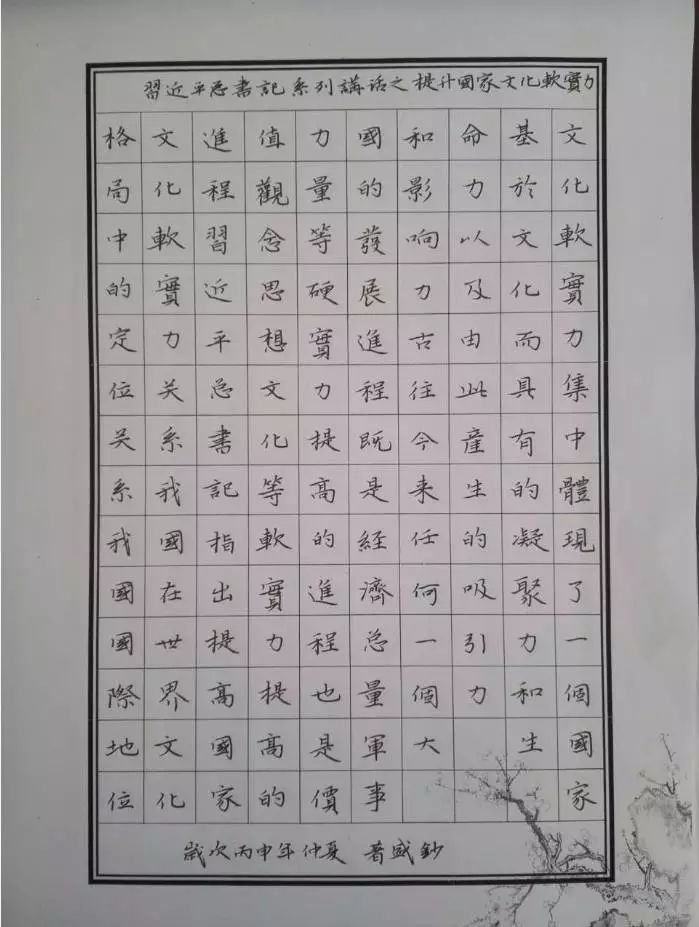 習近平总書記系列講话之提升國家文化軟實力
文化軟實力集中體現了一個國家
基於文化而具有的凝聚力和生
命力以及由此産生的吸引力
和影响力古往今來任何一個大
國的發展進程既是經濟总量軍事
力量等硬實力提高的進程也是價
值觀念思想文化等軟實力提高的
進程習近平总書記指出提高國家
文化軟實力关系我國在世界文化
格局中的定位关系我國國際地位
歲次丙申年仲夏 盛鈔